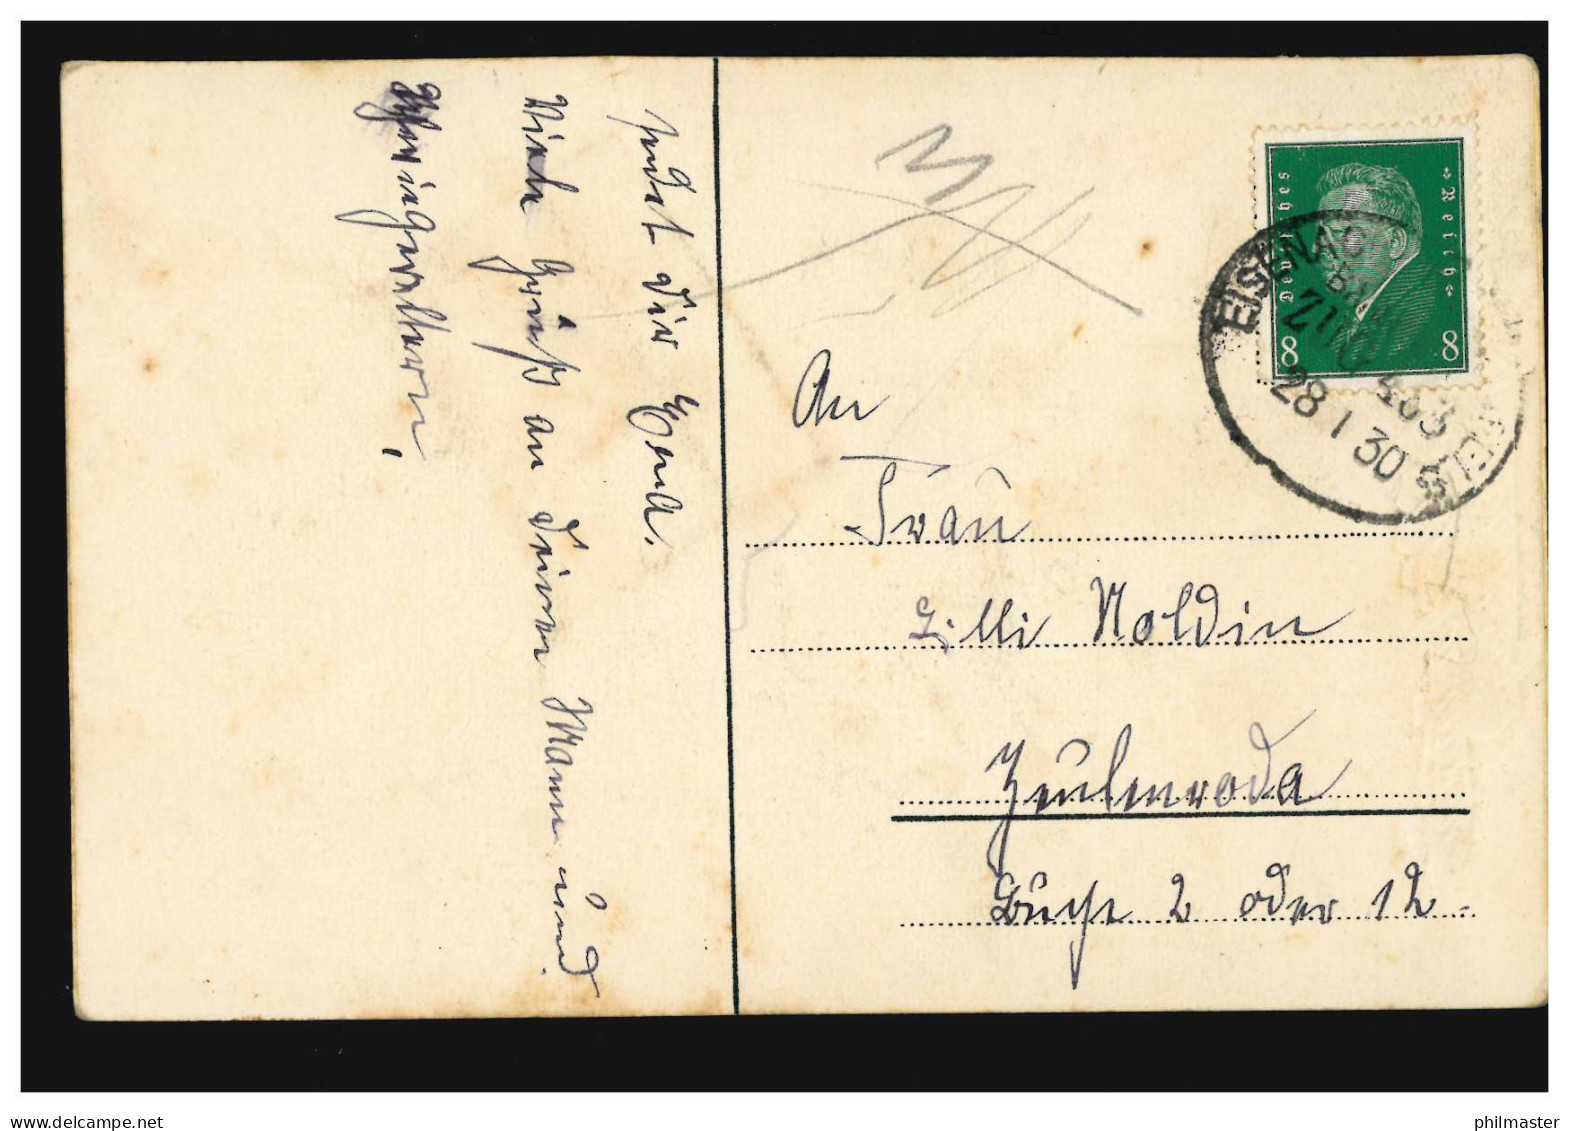 sendet dir
Viele Grüße an Deinen Mann und
Schwiegereltern,
Deutsches Reich
8 8
EISENA
BAHN
ZUG 403
28 1 30
An
Frau
Lilli Noldin
Zeulenroda
Buche 2 oder 12
delcampe.net
philmaster